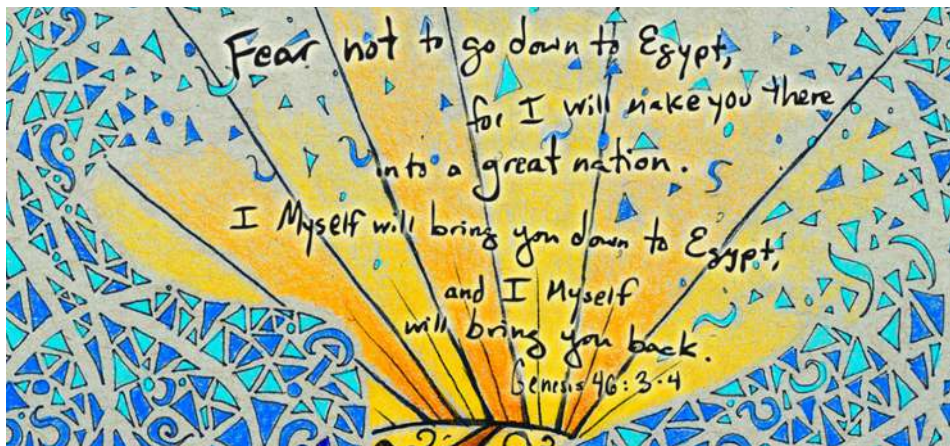 Fear not to go down to Egypt,
for I will make you there
into a great nation.
I Myself will bring you down to Egypt,
and I Myself
will bring you back.
Genesis 46:3-4